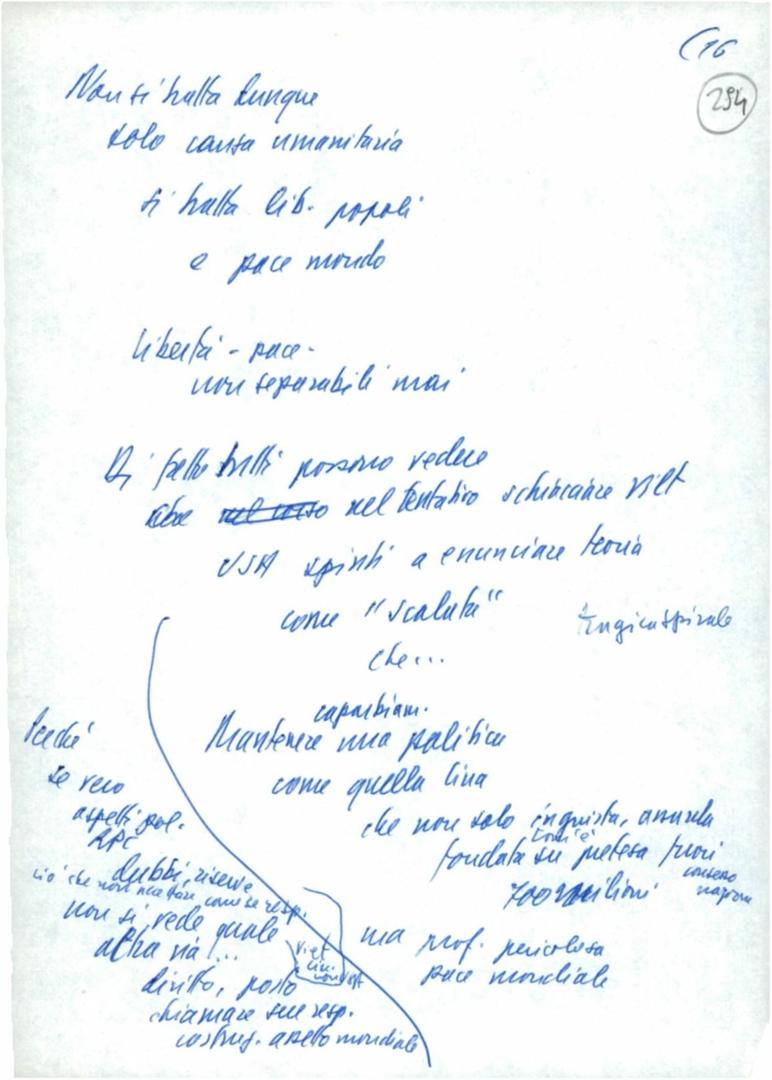 (16
294
Non si tratta dunque
solo causa umanitaria
si tratta lib. popoli
e pace mondo
libertà - pace -
non separabili mai
Di fatto tutti possono vedere
che nel corso nel tentativo schiacciare Viet
USA spinti a enunciare teoria
come "scalata"
tragica spirale
che...
caparbiam.
Mantenere una politica
come quella Cina
che non solo ingiusta, assurda
com'è
fondata su pretesa fuori
consesso
nazioni
700 milioni
ma prof. pericolosa
pace mondiale
Perché
se vero
aspetti pol.
RPC
dubbi, riserve
ciò che non
come resp.
non si vede quale
altra via...
Viet
Cin.
diritto, posto
chiamare sue resp.
costruz. assetto mondiale